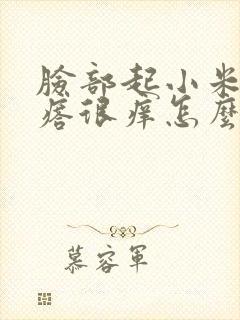 臉部起小米
痞很痒怎麼
慕容軍